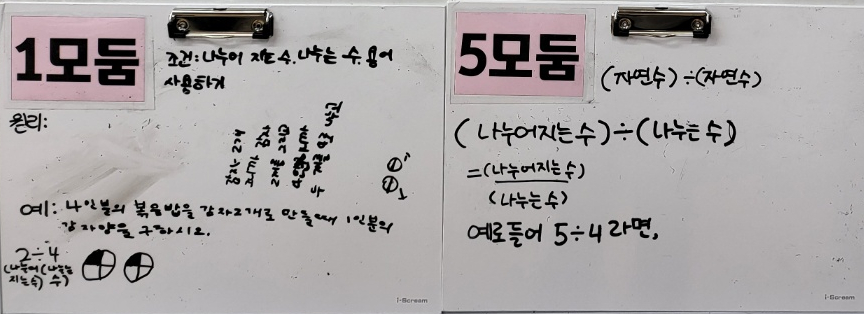 1모둠
조건: 나누어 지는 수, 나누는 수 용어
사용하기
원리:
예: 4인분의 볶음밥을 감자2개로 만들때 1인분의
감자양을 구하시오.
2÷4
(나누어 (나누는
지는수) 수)
i-Scream
5모둠
(자연수)÷(자연수)
(나누어지는수)÷(나누는수)
=(나누어지는수)
(나누는수)
예로들어 5÷4라면,
i-Scream